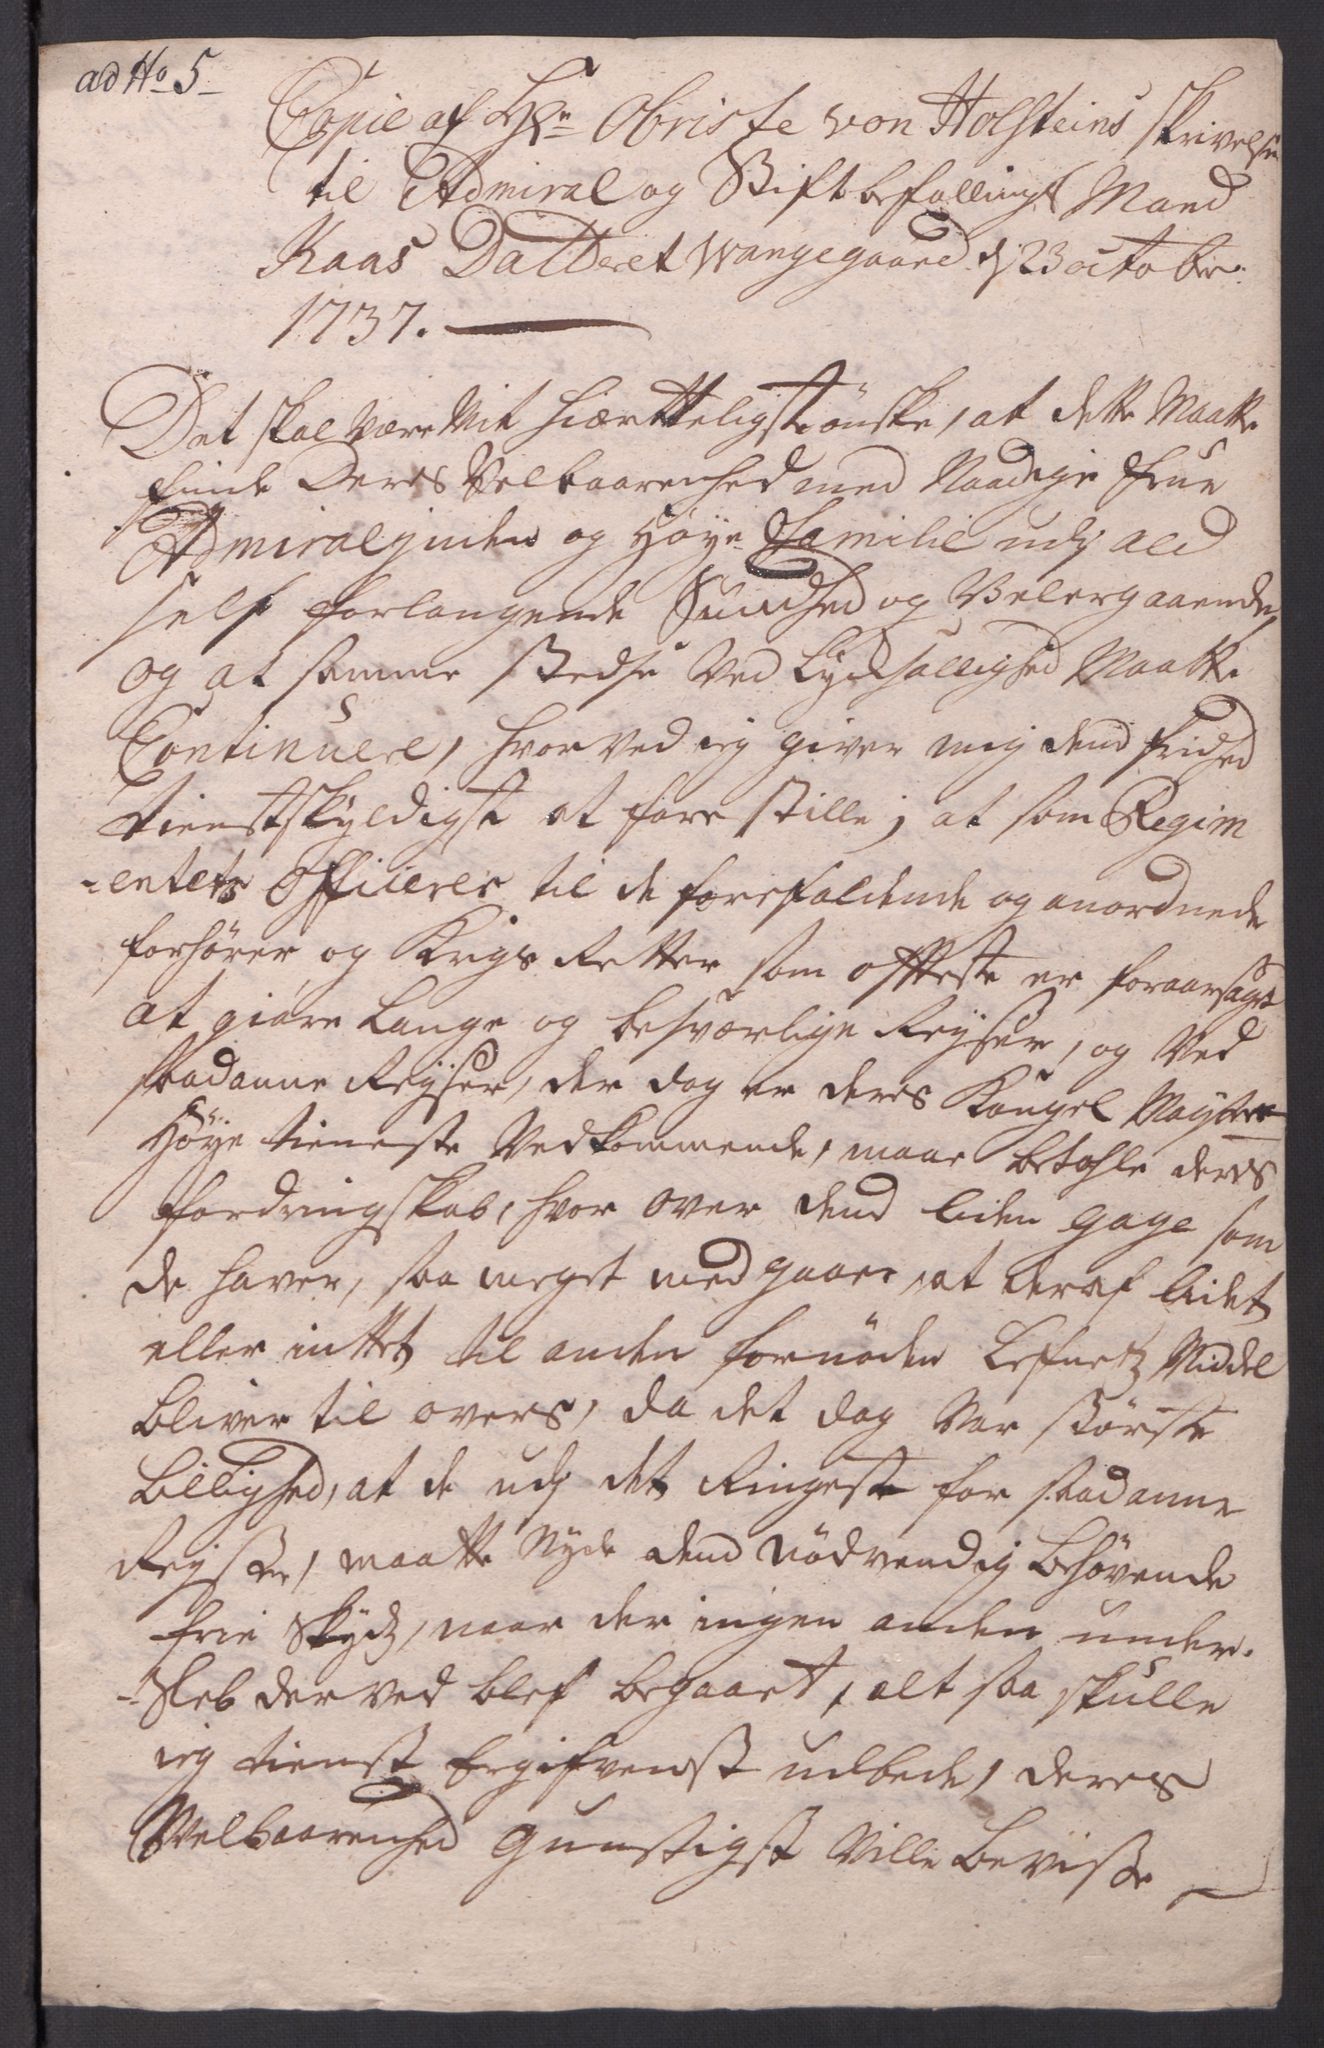 ad No 5
Copie af Hr. Obriste von Holsteins Skrivelse
til Admiral og Stiftbefallings Mand
Kaas Datteret Wangegaard d 23 octobr.
1737.
Det skal være Mit hiærtteligste ønske, at dette Maatte
finde Deres Velbaarenhed med Naadige Frue
Admiralinden og Høye Familie udj ald
self forlangende Sundhed og Velergaaende,
og at samme Stedse Ved Lycksallighed Maatte
Continuere, hvorved ieg giver mig dend frihed
tienstskyldigst at fore Stille, at som Regim
-entets Officerer til de forefaldende og anordnede
forhører og Krigs Retter som offteste er foraarsaget
at giøre Lange og besværlige Reyser, og Ved
saadanne Reyser, der dog er deres Kongel Mayts
Høye tieneste Vedkommende, maae betahle deres
fordringskab, hvor over dend liden gage som
de haver, saa meget med gaaer, at deraf lidet
eller inttet til anden fornøden Lefnets Middel
bliver til overs, da det dog Var Største
billighed, at de udj det Ringeste for saadanne
Reyser, maatte Nyde dend nødvendig behøvende
frie Skyds, naar der ingen anden under-
-Sleb derved blef begaaet, alt saa skulle
ieg tienst Ergifvenst udbede, deres
Velbaarenhed gunstigst Ville bevisse